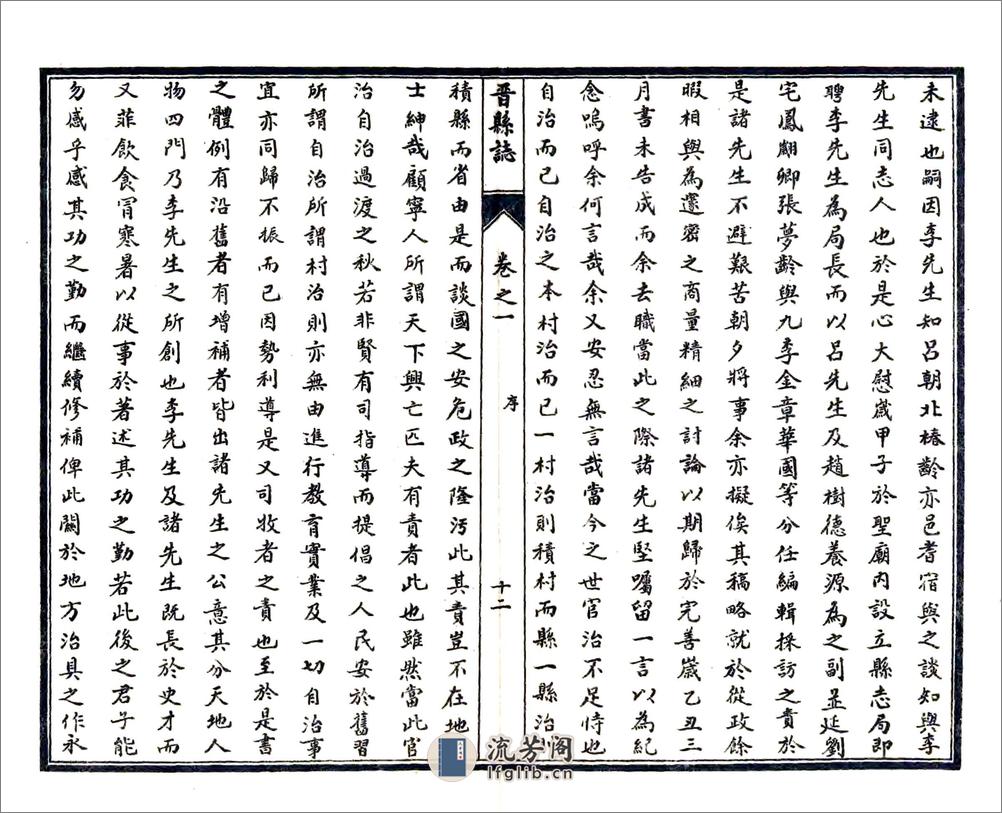 未逮也嗣因李先生知呂朝北椿齡亦邑耆宿與之談知與李
先生同志人也於是心大慰歲甲子於聖廟內設立縣志局即
聘李先生為局長而以呂先生及趙樹德養源為之副並延劉
宅鳳翽卿張夢齡與九李金章華國等分任編輯採訪之責於
是諸先生不避艱苦朝夕將事余亦擬俟其稿略就於從政餘
暇相與為邃密之商量精細之討論以期歸於完善歲乙丑三
月書未告成而余去職當此之際諸先生堅囑留一言以為紀
念嗚呼余何言哉余又安忍無言哉當今之世官治不足恃也
自治而已自治之本村治而已一村治則積村而縣一縣治則
晉縣誌
卷之一
序
十二
積縣而省由是而談國之安危政之隆污此其責豈不在地方
士紳哉顧寧人所謂天下興亡匹夫有責者此也雖然當此官
治自治過渡之秋若非賢有司指導而提倡之人民安於舊習
所謂自治所謂村治則亦無由進行教育實業及一切自治事
宜亦同歸不振而已因勢利導是又司牧者之責也至於是書
之體例有沿舊者有增補者皆出諸先生之公意其分天地人
物四門乃李先生之所創也李先生及諸先生既長於史才而
又菲飲食冒寒暑以從事於著述其功之勤若此後之君子能
勿感乎感其功之勤而繼續修補俾此關於地方治具之作永
流芳阁
lfglib.cn